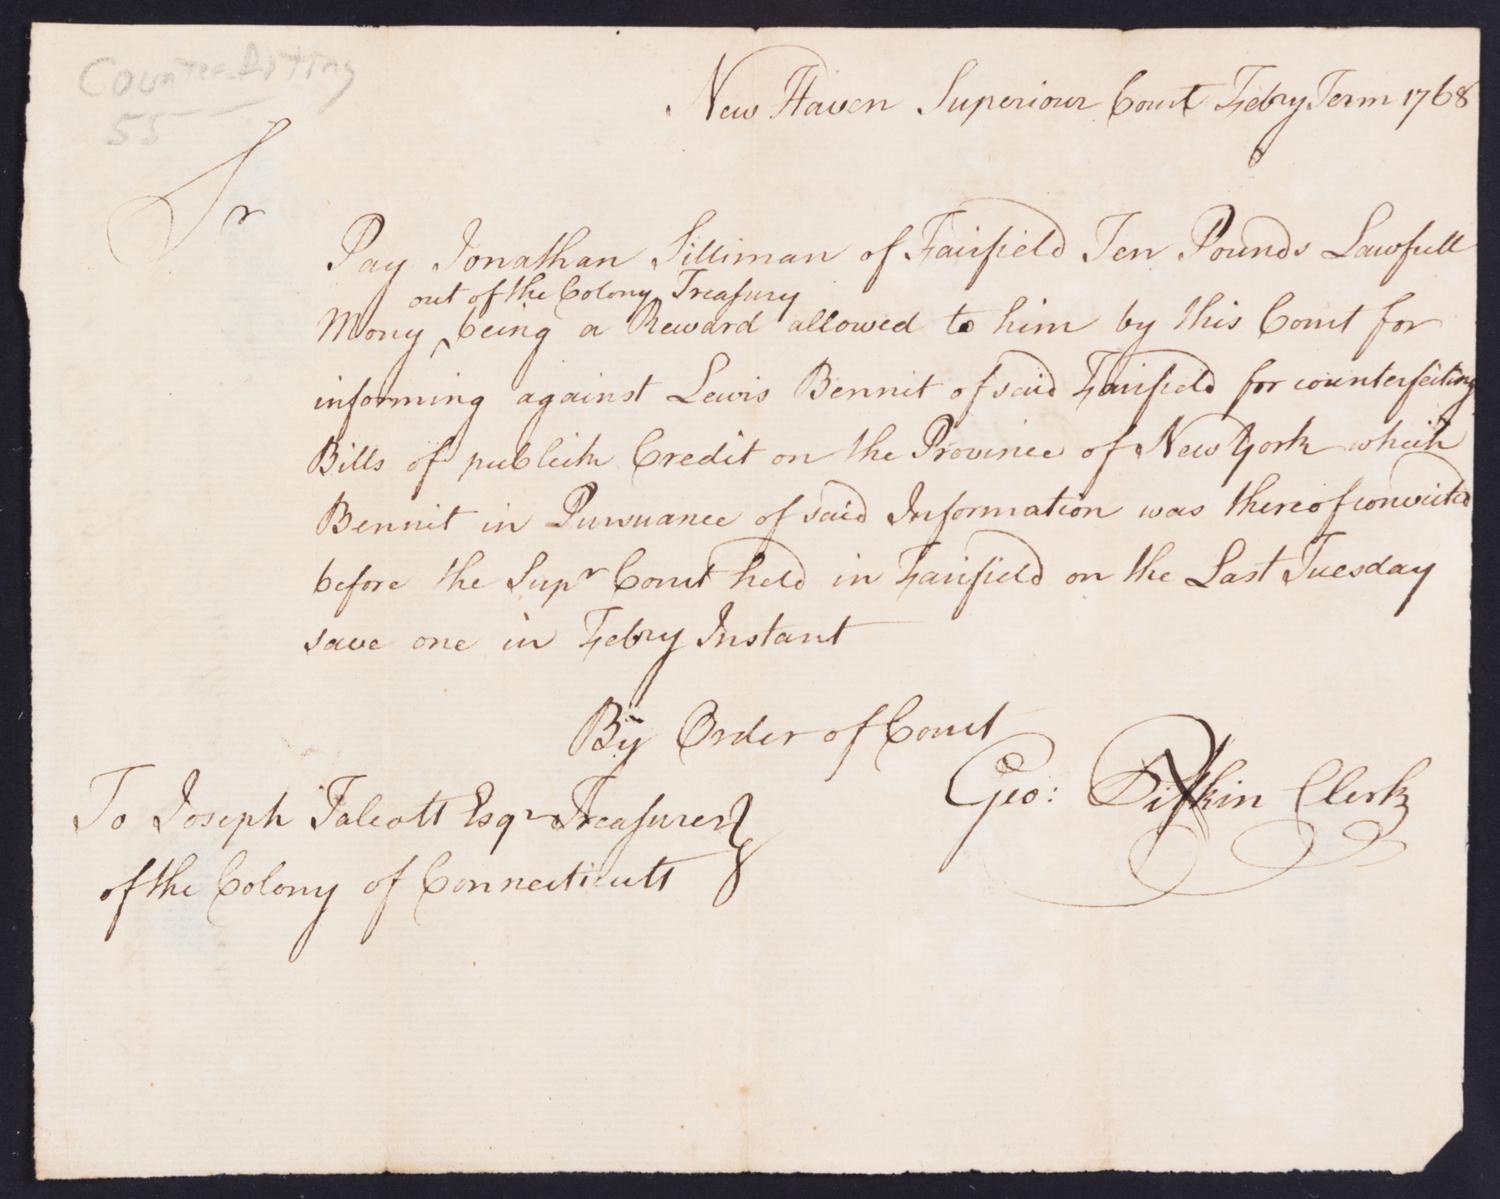 Counterfitting
55
New Haven Superiour Court Febry Term 1768
Sr
Pay Jonathan Silliman of Fairfield Ten Pounds Lawfull
out of the Colony Treasury
Mony ‸ being a Reward allowed to him by this Court for
informing against Lewis Bennit of said Fairfield for counterfeiting
Bills of publick Credit on the Province of New York which
Bennit in Pursuance of said Information was thereof convicted
before the Supr Court held in Fairfield on the Last Tuesday
save one in Febry Instant
By Order of Court
Geo: Pitkin Clerk
To Joseph Talcott Esqr Treasurer
of the Colony of Connecticutt